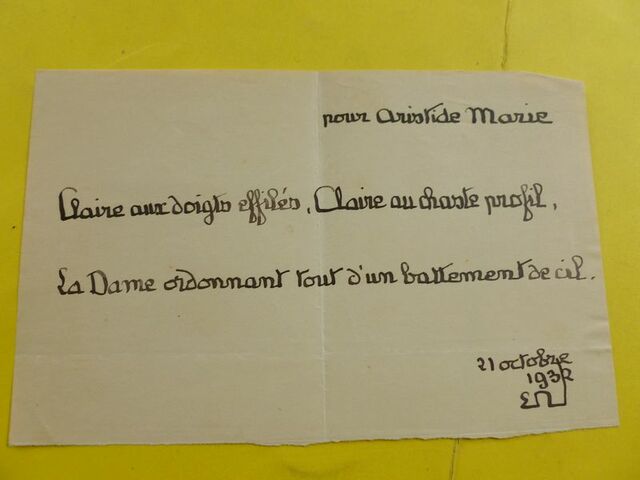 pour Aristide Marie
Claire aux doigts effilés, Claire au chaste profil,
La Dame ordonnant tout d'un battement de cil.
21 octobre
1932